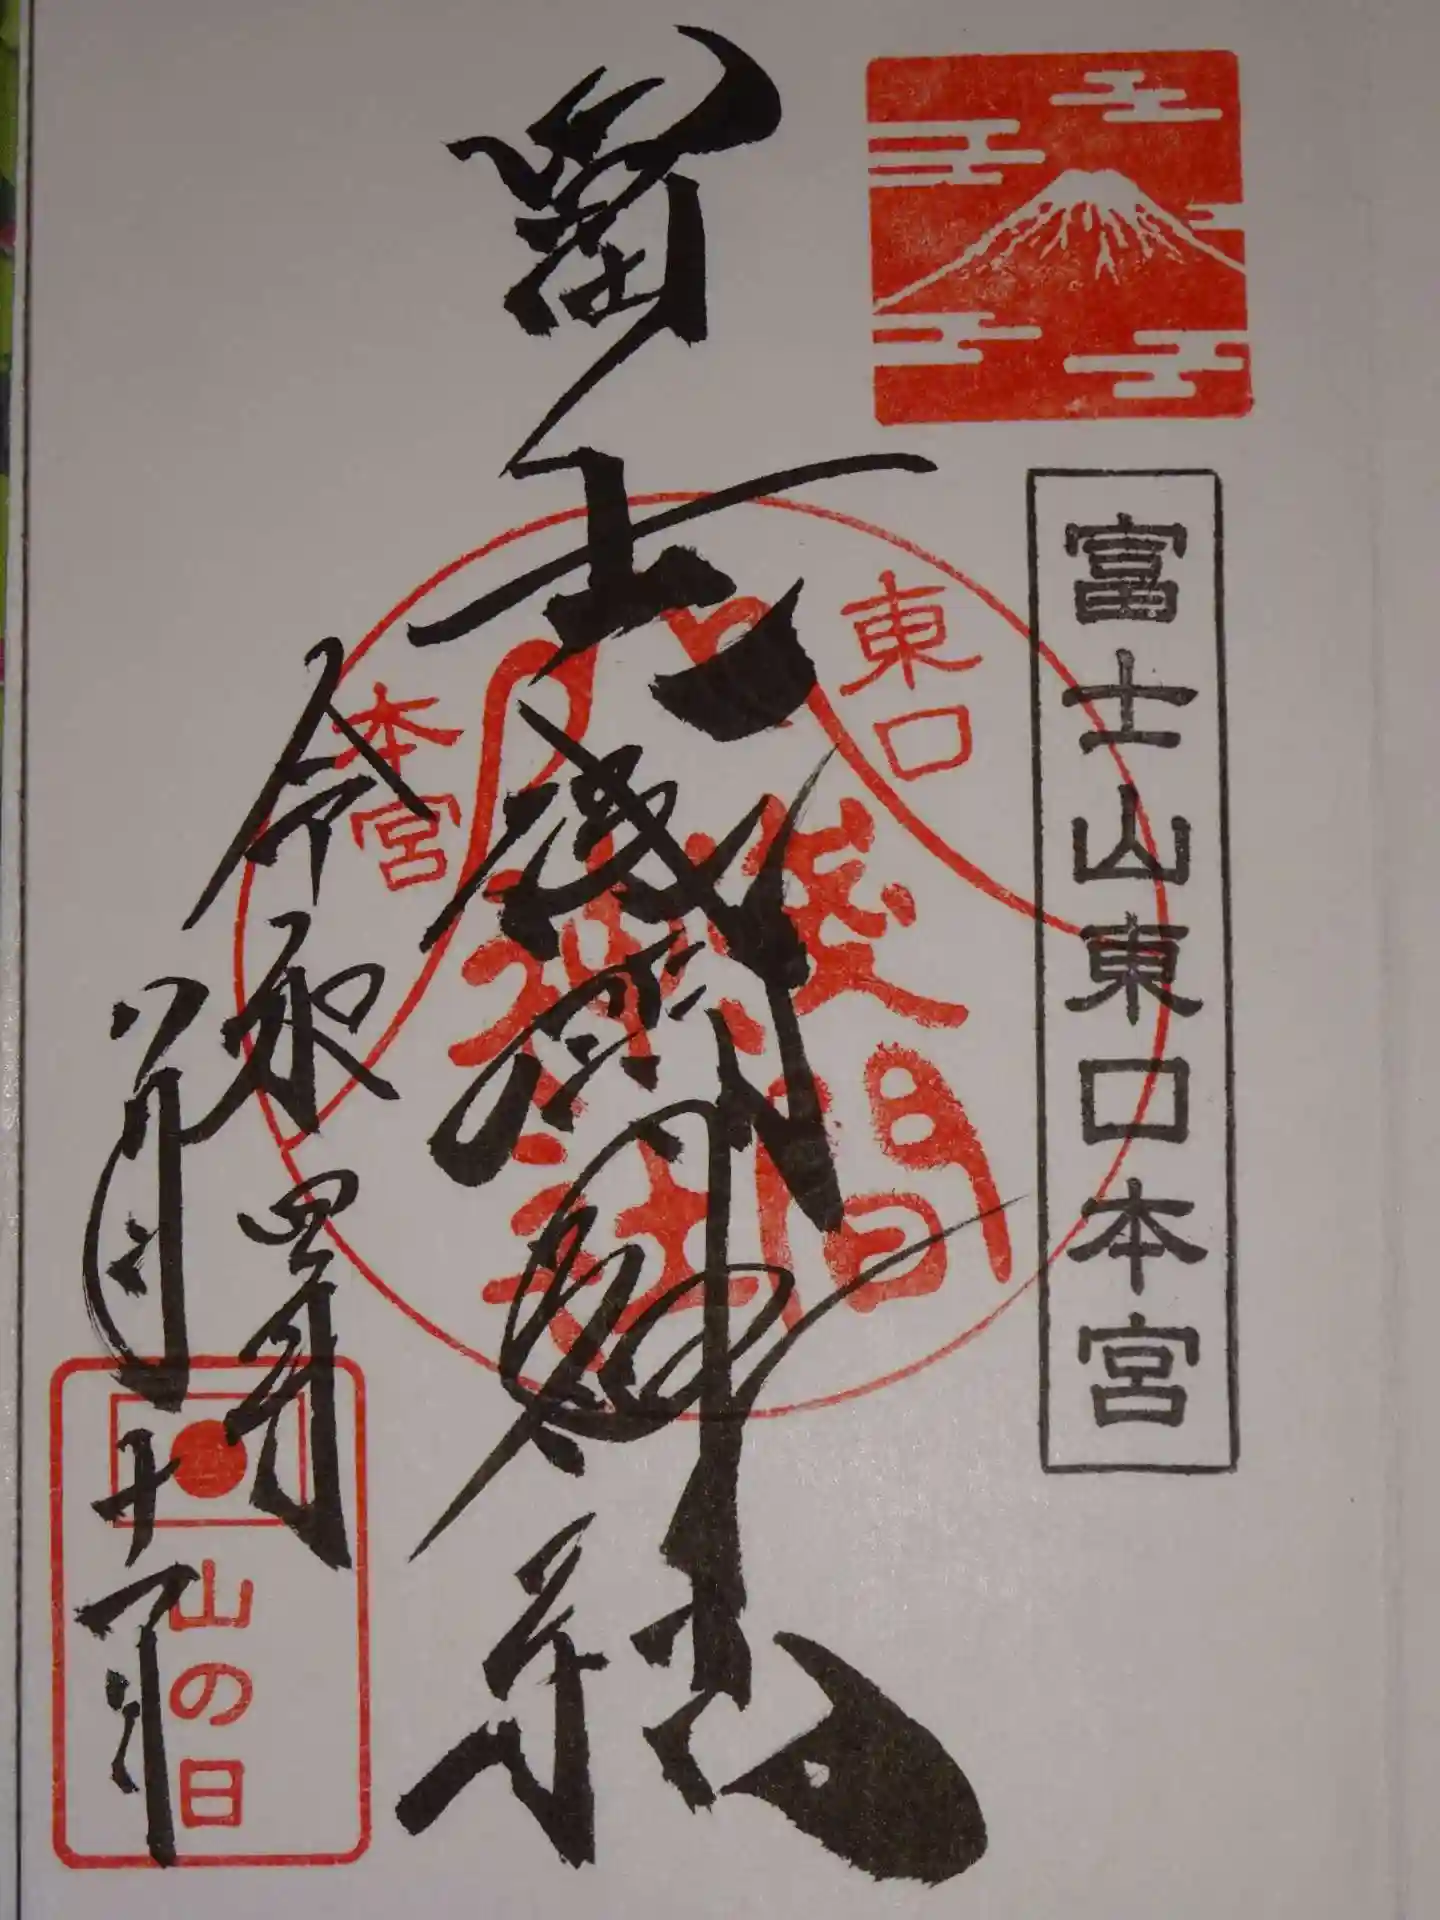 富士山東口本宮
冨士浅間神社
東口
本宮
淺間
神社
令和四年
八月十一日
山の日